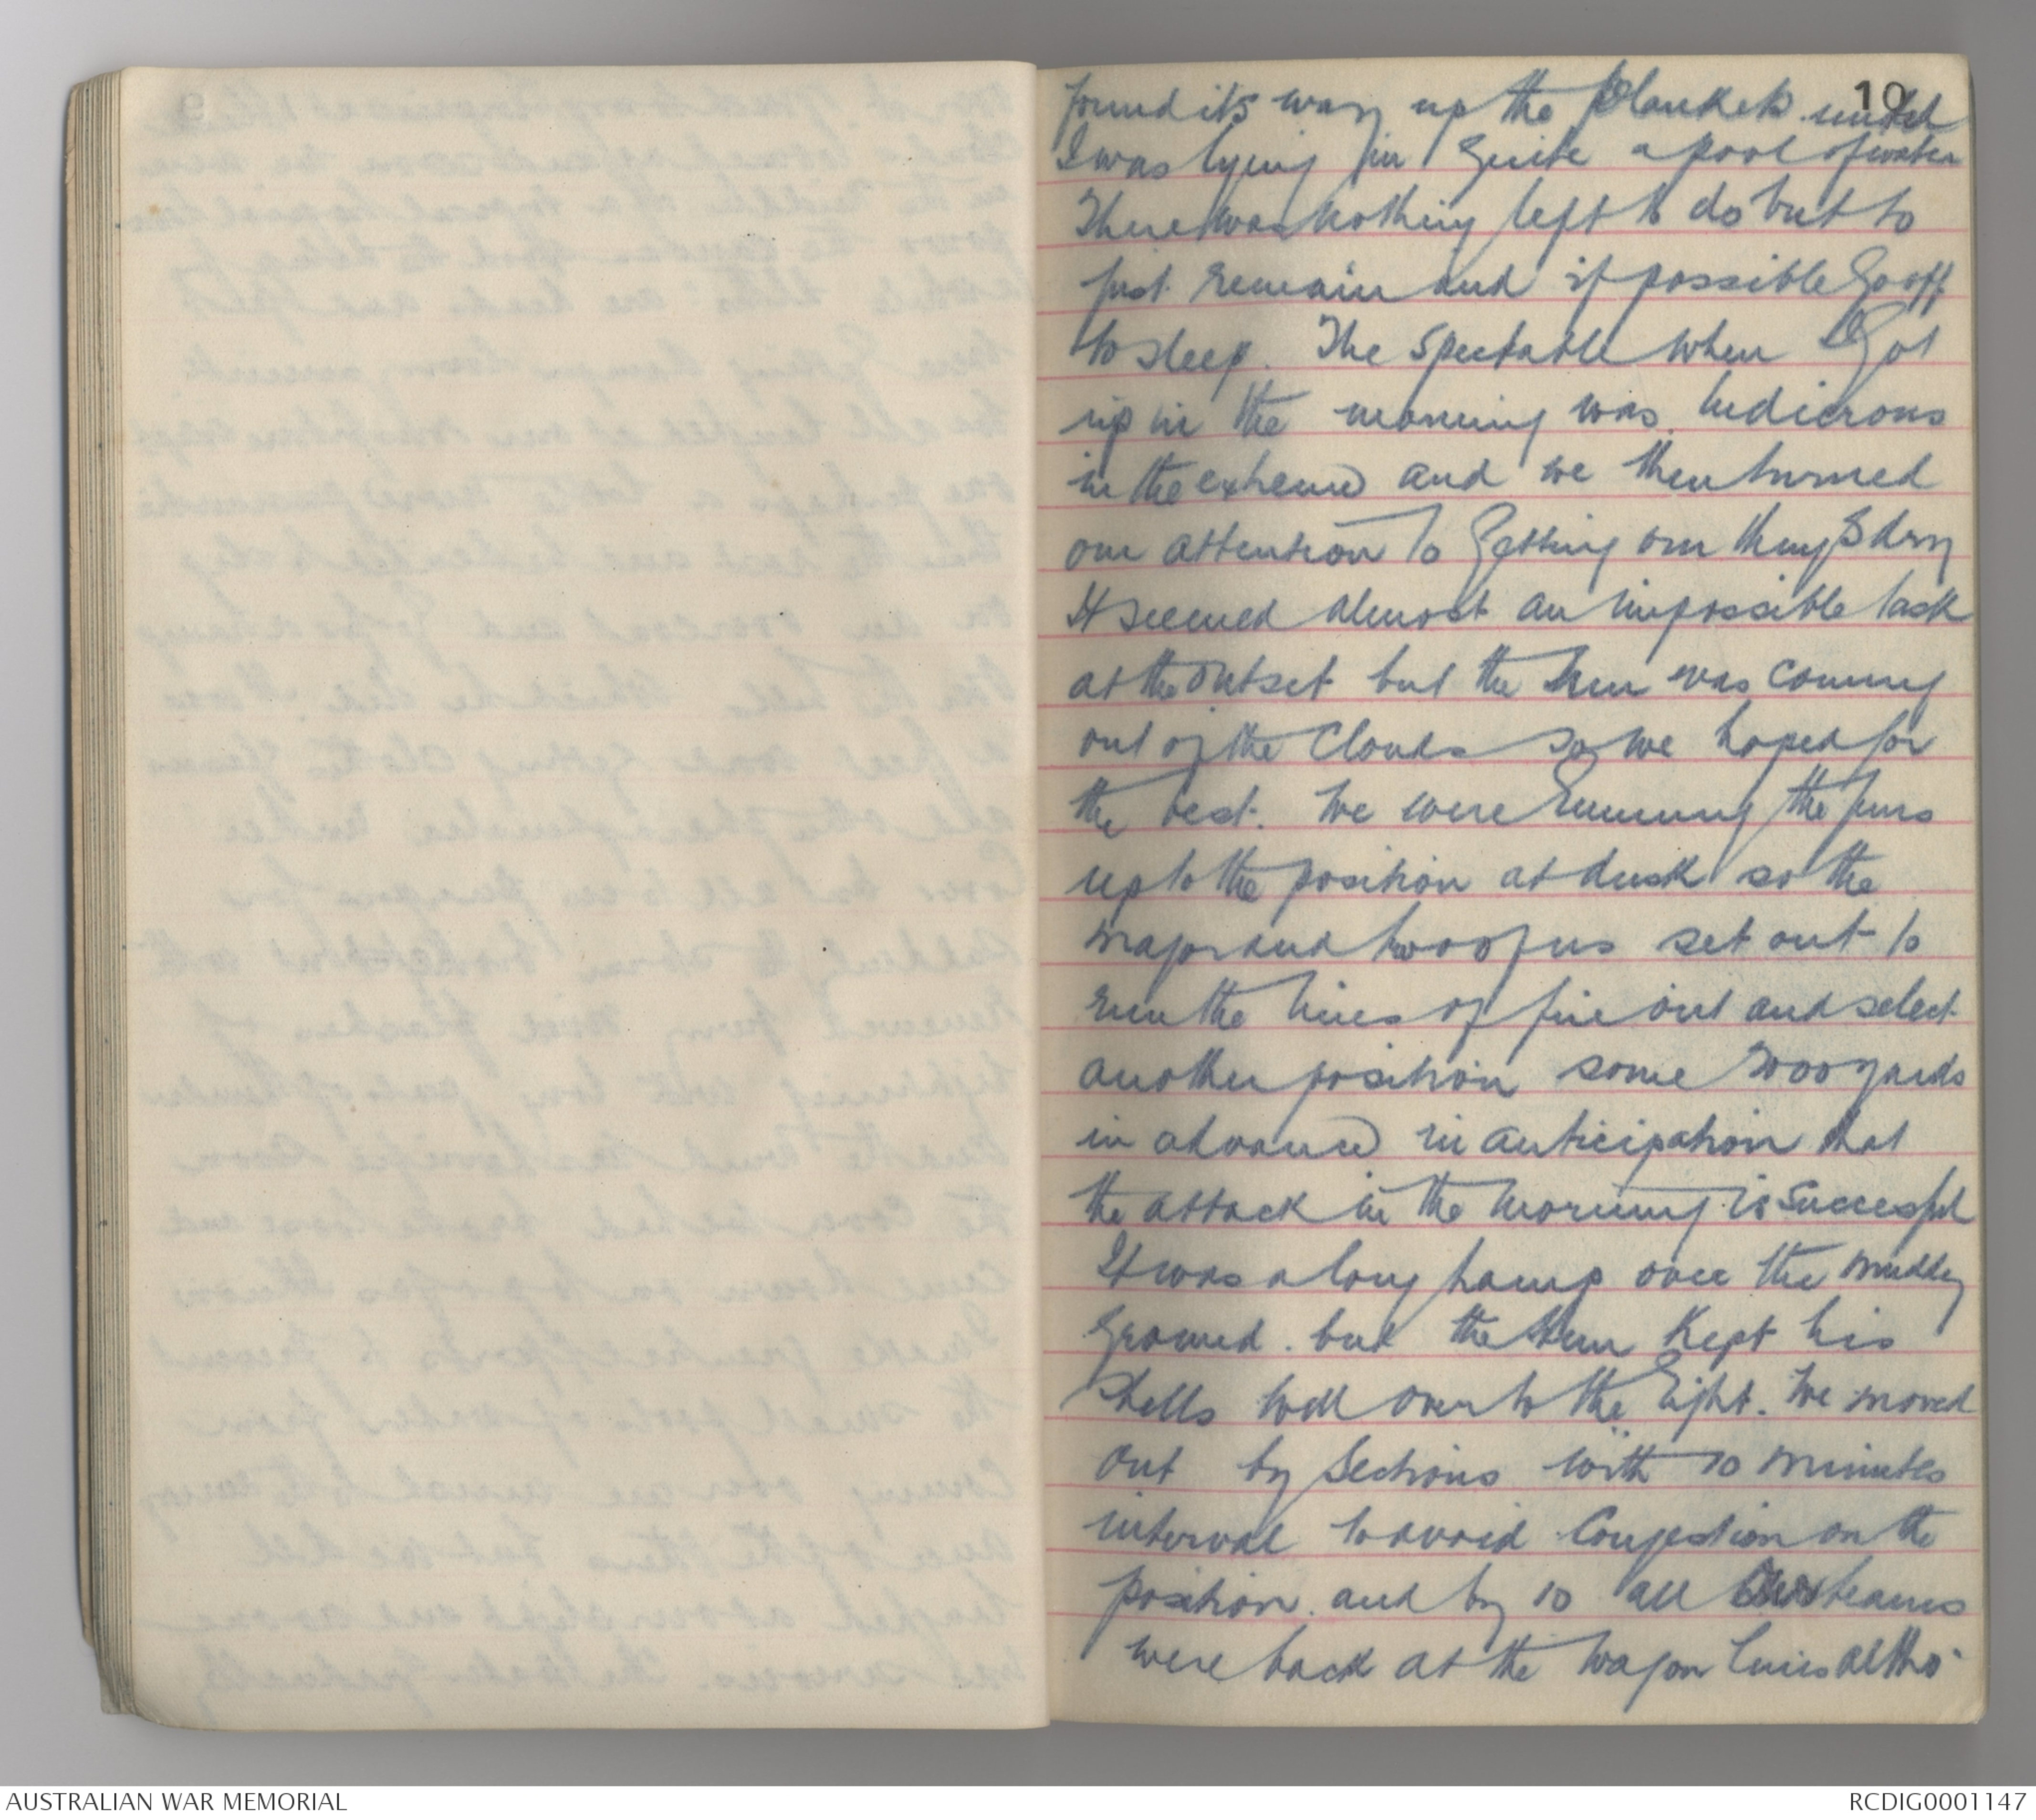 10
found its way up the blankets until
I was lying in quite a pool of water
There was nothing left to do but to
just remain and if possible go off
to sleep. The spectacle when I got
up in the morning was ludicrous
in the extreme and we then turned
our attention to getting our things dry
It seemed almost an impossible task
at the outset but the sun was coming
out of the clouds so we hoped for
the best. We were running the guns
up to the position at dusk so the
Major and two of us set out to
run the lines of fire out and select
another position some 2000 yards
in advance in anticipation that
the attack in the morning is successful
It was a long tramp over the muddy
ground. but the Hun kept his
shells well over to the right. We moved
out by sections with 10 minutes
interval to avoid congestion on the
position. and by 10 all teams
were back at the wagon lines altho'
AUSTRALIAN WAR MEMORIAL
RCDIG0001147